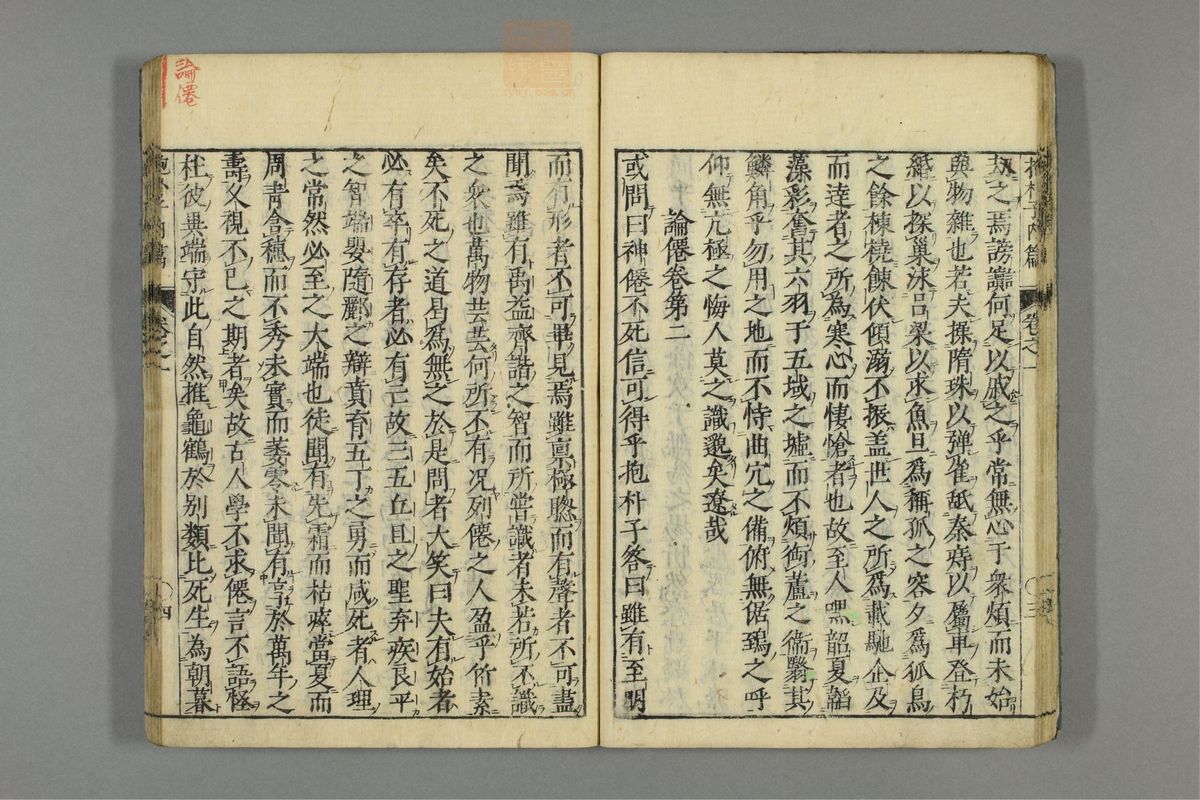 抱朴子内篇 卷之一 三
刼之焉謗讟何足以戚之乎常無心于衆煩而未始
與物雜也若夫操隋珠以弾雀舐秦痔以属車登朽
緡以探巢泳呂梁以求魚旦爲稱孤之容夕爲狐鳥
之餘棟橈餗伏傾溺不振盖世人之所爲載馳企及
而逹者之所為寒心而悽愴者也故至人嘿韶夏韜
藻彩奮其六羽于五域之墟而不煩衘蘆之衛翳其
鱗角乎勿用之地而不恃曲穴之備俯無倨鵄之呼
仰無亢極之悔人莫之識邈矣遼哉
論僊卷第二
或問曰神僊不死信可得乎抱朴子答曰雖有至明
而有形者不可畢見焉雖禀極聦而有聲者不可盡
聞焉雖有禹益齊諧之智而所甞識者未若所不識
之衆也萬物芸芸何所不有况列僊之人盈乎竹素
矣不死之道曷爲無之於是問者大笑曰夫有始者
必有卒有存者必有亡故三五丘旦之聖弃疾良平
之智端嬰隨酈之辯賁育五丁之勇而咸死者人理
之常然必至之大端也徒聞有先霜而枯瘁當夏而
凋青含穗而不秀未實而萎零未聞有享於萬年之
壽久視不已之期者矣故古人學不求僊言不語怪
杜彼異端守此自然推龜鶴於别類比死生為朝暮
抱朴子内篇 卷之一 四
論僊